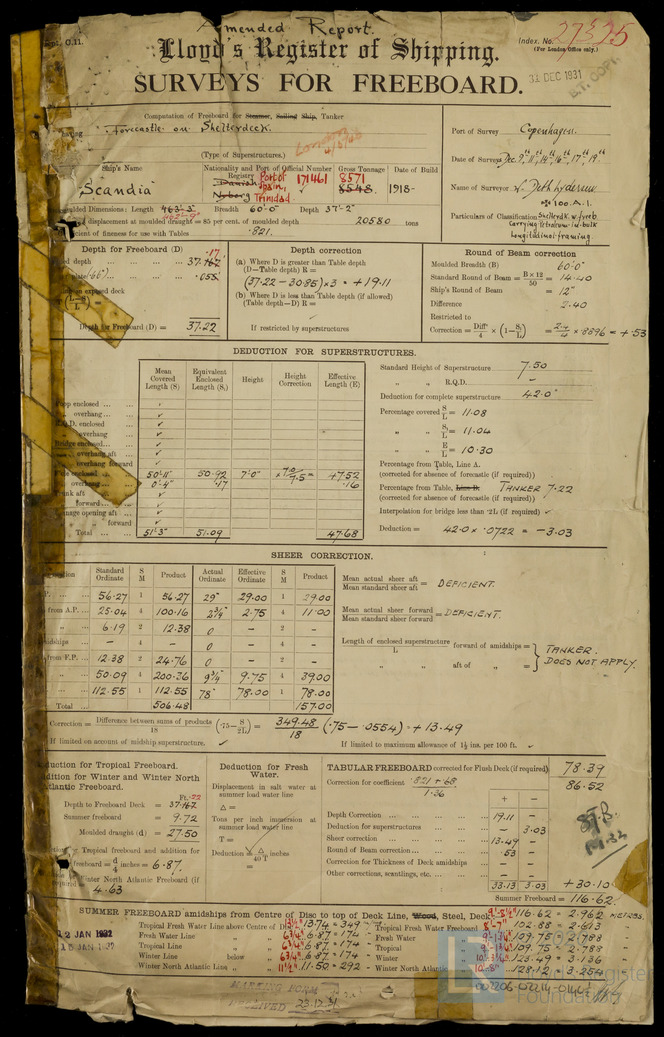 Amended Report.
Lloyd's Register of Shipping.
Index. No. 27325
(For London Office only.)
SURVEYS FOR FREEBOARD.
31 DEC 1931
B.T. COPY
Computation of Freeboard for Steamer, Sailing Ship, Tanker
having Forecastle on Shelterdeck.
(Type of Superstructures.)
London
4/3/46
Port of Survey Copenhagen.
Ship's Name
Nationality and Port of Registry
Official Number
Gross Tonnage
Date of Build
Scandia
Danish
Nyborg
Port of Spain, Trinidad
171461
8571
8548.
1918-
Name of Surveyor
Particulars of Classification +100.A.1.
Shelterdk. w. freeb.
Carrying Petroleum in bulk
Longitudinal framing.
Moulded Dimensions: Length 463'-5" Breadth 60'-0" Depth 37'-2"
463'-9"
displacement at moulded draught = 85 per cent. of moulded depth 20580 tons
Coefficient of fineness for use with Tables .821.
Depth for Freeboard (D)
Moulded depth 37.167
.17
.055
Depth for Freeboard (D) = 37.22
Depth correction
(a) Where D is greater than Table depth
(D—Table depth) R =
(37.22 - 30.85) × 3 = + 19.11
(b) Where D is less than Table depth (if allowed)
(Table depth—D) R =
If restricted by superstructures
Round of Beam correction
Moulded Breadth (B) 60'0"
Standard Round of Beam = B × 12 / 50 = 14.40
Ship's Round of Beam = 12"
Difference 2.40
Restricted to
Correction = Diff / 4 × (1 − S/L) = 2.4/4 × .8896 = + .53
DEDUCTION FOR SUPERSTRUCTURES.
Mean Covered Length (S)
Equivalent Enclosed Length (S₁)
Height
Height Correction
Effective Length (E)
Poop enclosed
overhang
R.Q.D. enclosed
overhang
Bridge enclosed
overhang aft
overhang forward
F'cle enclosed 50'-11" 50.92 7'-0" × 7.0/7.5 = 47.52
overhang 0'-4" .17 .16
Trunk aft
forward
Tonnage opening aft
forward
Total 51'-3" 51.09 47.68
Standard Height of Superstructure 7.50
„ „ R.Q.D. –
Deduction for complete superstructure 42.0"
Percentage covered S/L = 11.08
„ „ S₁/L = 11.04
„ „ E/L = 10.30
Percentage from Table, Line A.
(corrected for absence of forecastle (if required))
Percentage from Table, Line B. TANKER 7.22
(corrected for absence of forecastle (if required))
Interpolation for bridge less than ·2L (if required)
Deduction = 42.0 × .0722 = – 3.03
SHEER CORRECTION.
Station
Standard Ordinate
S M
Product
Actual Ordinate
Effective Ordinate
S M
Product
A.P. 56.27 1 56.27 29" 29.00 1 29.00
from A.P. 25.04 4 100.16 2¾" 2.75 4 11.00
„ 6.19 2 12.38 0 – 2 –
Amidships – 4 – 0 – 4 –
from F.P. 12.38 2 24.76 0 – 2 –
„ 50.09 4 200.36 9¾" 9.75 4 39.00
„ 112.55 1 112.55 78" 78.00 1 78.00
Total 506.48 157.00
Mean actual sheer aft / Mean standard sheer aft = DEFICIENT.
Mean actual sheer forward / Mean standard sheer forward = DEFICIENT.
Length of enclosed superstructure / L forward of amidships =
„ „ aft of „ =
TANKER.
DOES NOT APPLY.
Correction = Difference between sums of products / 18 (·75 − S/2L) = 349.48 / 18 (.75 – .0554) = + 13.49
If limited on account of midship superstructure.
If limited to maximum allowance of 1½ ins. per 100 ft.
Deduction for Tropical Freeboard.
Addition for Winter and Winter North Atlantic Freeboard.
Depth to Freeboard Deck = 37.167
Ft. .22
Summer freeboard = 9.72
Moulded draught (d) = 27.50
Tropical freeboard and addition for
freeboard = d/4 inches = 6.87.
Winter North Atlantic Freeboard (if required) = 4.63
Deduction for Fresh Water.
Displacement in salt water at summer load water line
Δ =
Tons per inch immersion at summer load water line
T =
Deduction = Δ / 40 T inches
=
TABULAR FREEBOARD corrected for Flush Deck (if required) 78.39
Correction for coefficient .821 + .68 / 1.36 86.52
+ –
Depth Correction 19.11 –
Deduction for superstructures – 3.03
Sheer correction 13.49 –
Round of Beam correction .53 –
Correction for Thickness of Deck amidships – –
Other corrections, scantlings, etc. – –
33.13 3.03 + 30.10
Summer Freeboard = 116.62.
SUMMER FREEBOARD amidships from Centre of Disc to top of Deck Line, Wood, Steel, Deck 9'-8½" 116.62 = 2.962 METRES.
Tropical Fresh Water Line above Centre of Disc 13¾" 13.74 = 349
Fresh Water Line „ „ 6¾" 6.87 = 174
Tropical Line „ „ 6¾" 6.87 = 174
Winter Line below „ 6¾" 6.87 = 174
Winter North Atlantic Line „ „ 11½" 11.50 = 292
Tropical Fresh Water Freeboard 8'-7" 102.88 = 2.613
Fresh Water „ 9'-1¾" 109.75 = 2.788
Tropical „ 9'-1¾" 109.75 = 2.788
Winter „ 123.49 = 3.136
Winter North Atlantic „ 10'-8" 128.12 = 3.254
12 JAN 1932
MARKING FORM
RECEIVED 23.12.31
Lloyd's Register
Foundation
002206-002214-0140